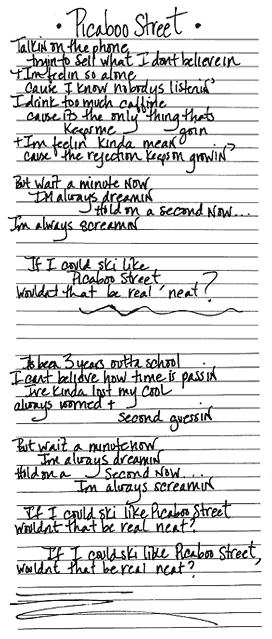 • Picaboo Street •
Talkin on the phone
tryin to sell what I dont believe in
+ Im feelin so alone
cause I know nobodys listenin'
I drink too much caffine
cause its the only thing thats
keeps me goin
+ Im feelin' kinda mean
cause the rejection keeps on growin'
But wait a minute now
I'm always dreamin
Hold on a second now....
I'm always screamin
If I could ski like
Picaboo Street
wouldnt that be real neat?
Its been 3 years outta school
I cant believe how time is passin
Ive kinda lost my cool
always worried +
second guessin
But wait a minute now
I'm always dreamin
Hold on a second now....
I'm always screamin
If I could ski like Picaboo Street
wouldnt that be real neat?
If I could ski like Picaboo Street,
wouldnt that be real neat?